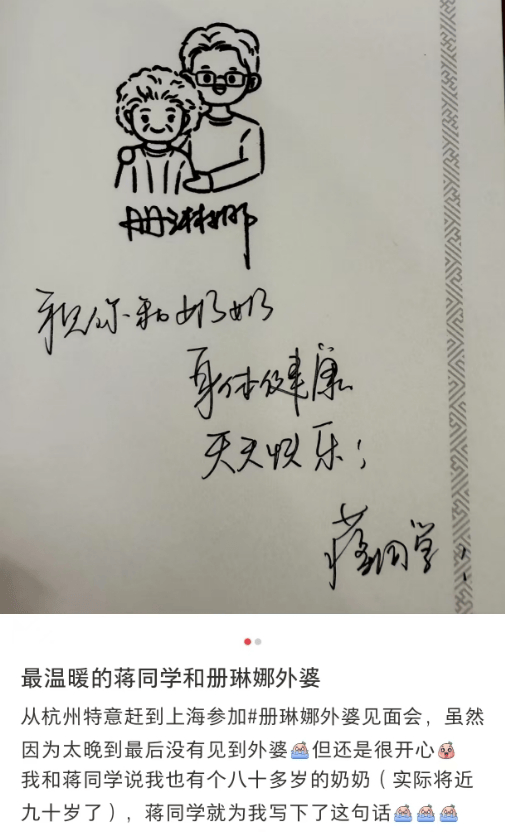 册琳娜
祝你和奶奶
身体健康
天天快乐！
蒋同学！
最温暖的蒋同学和册琳娜外婆
从杭州特意赶到上海参加#册琳娜外婆见面会，虽然
因为太晚到最后没有见到外婆但还是很开心
我和蒋同学说我也有个八十多岁的奶奶（实际将近
九十岁了），蒋同学就为我写下了这句话